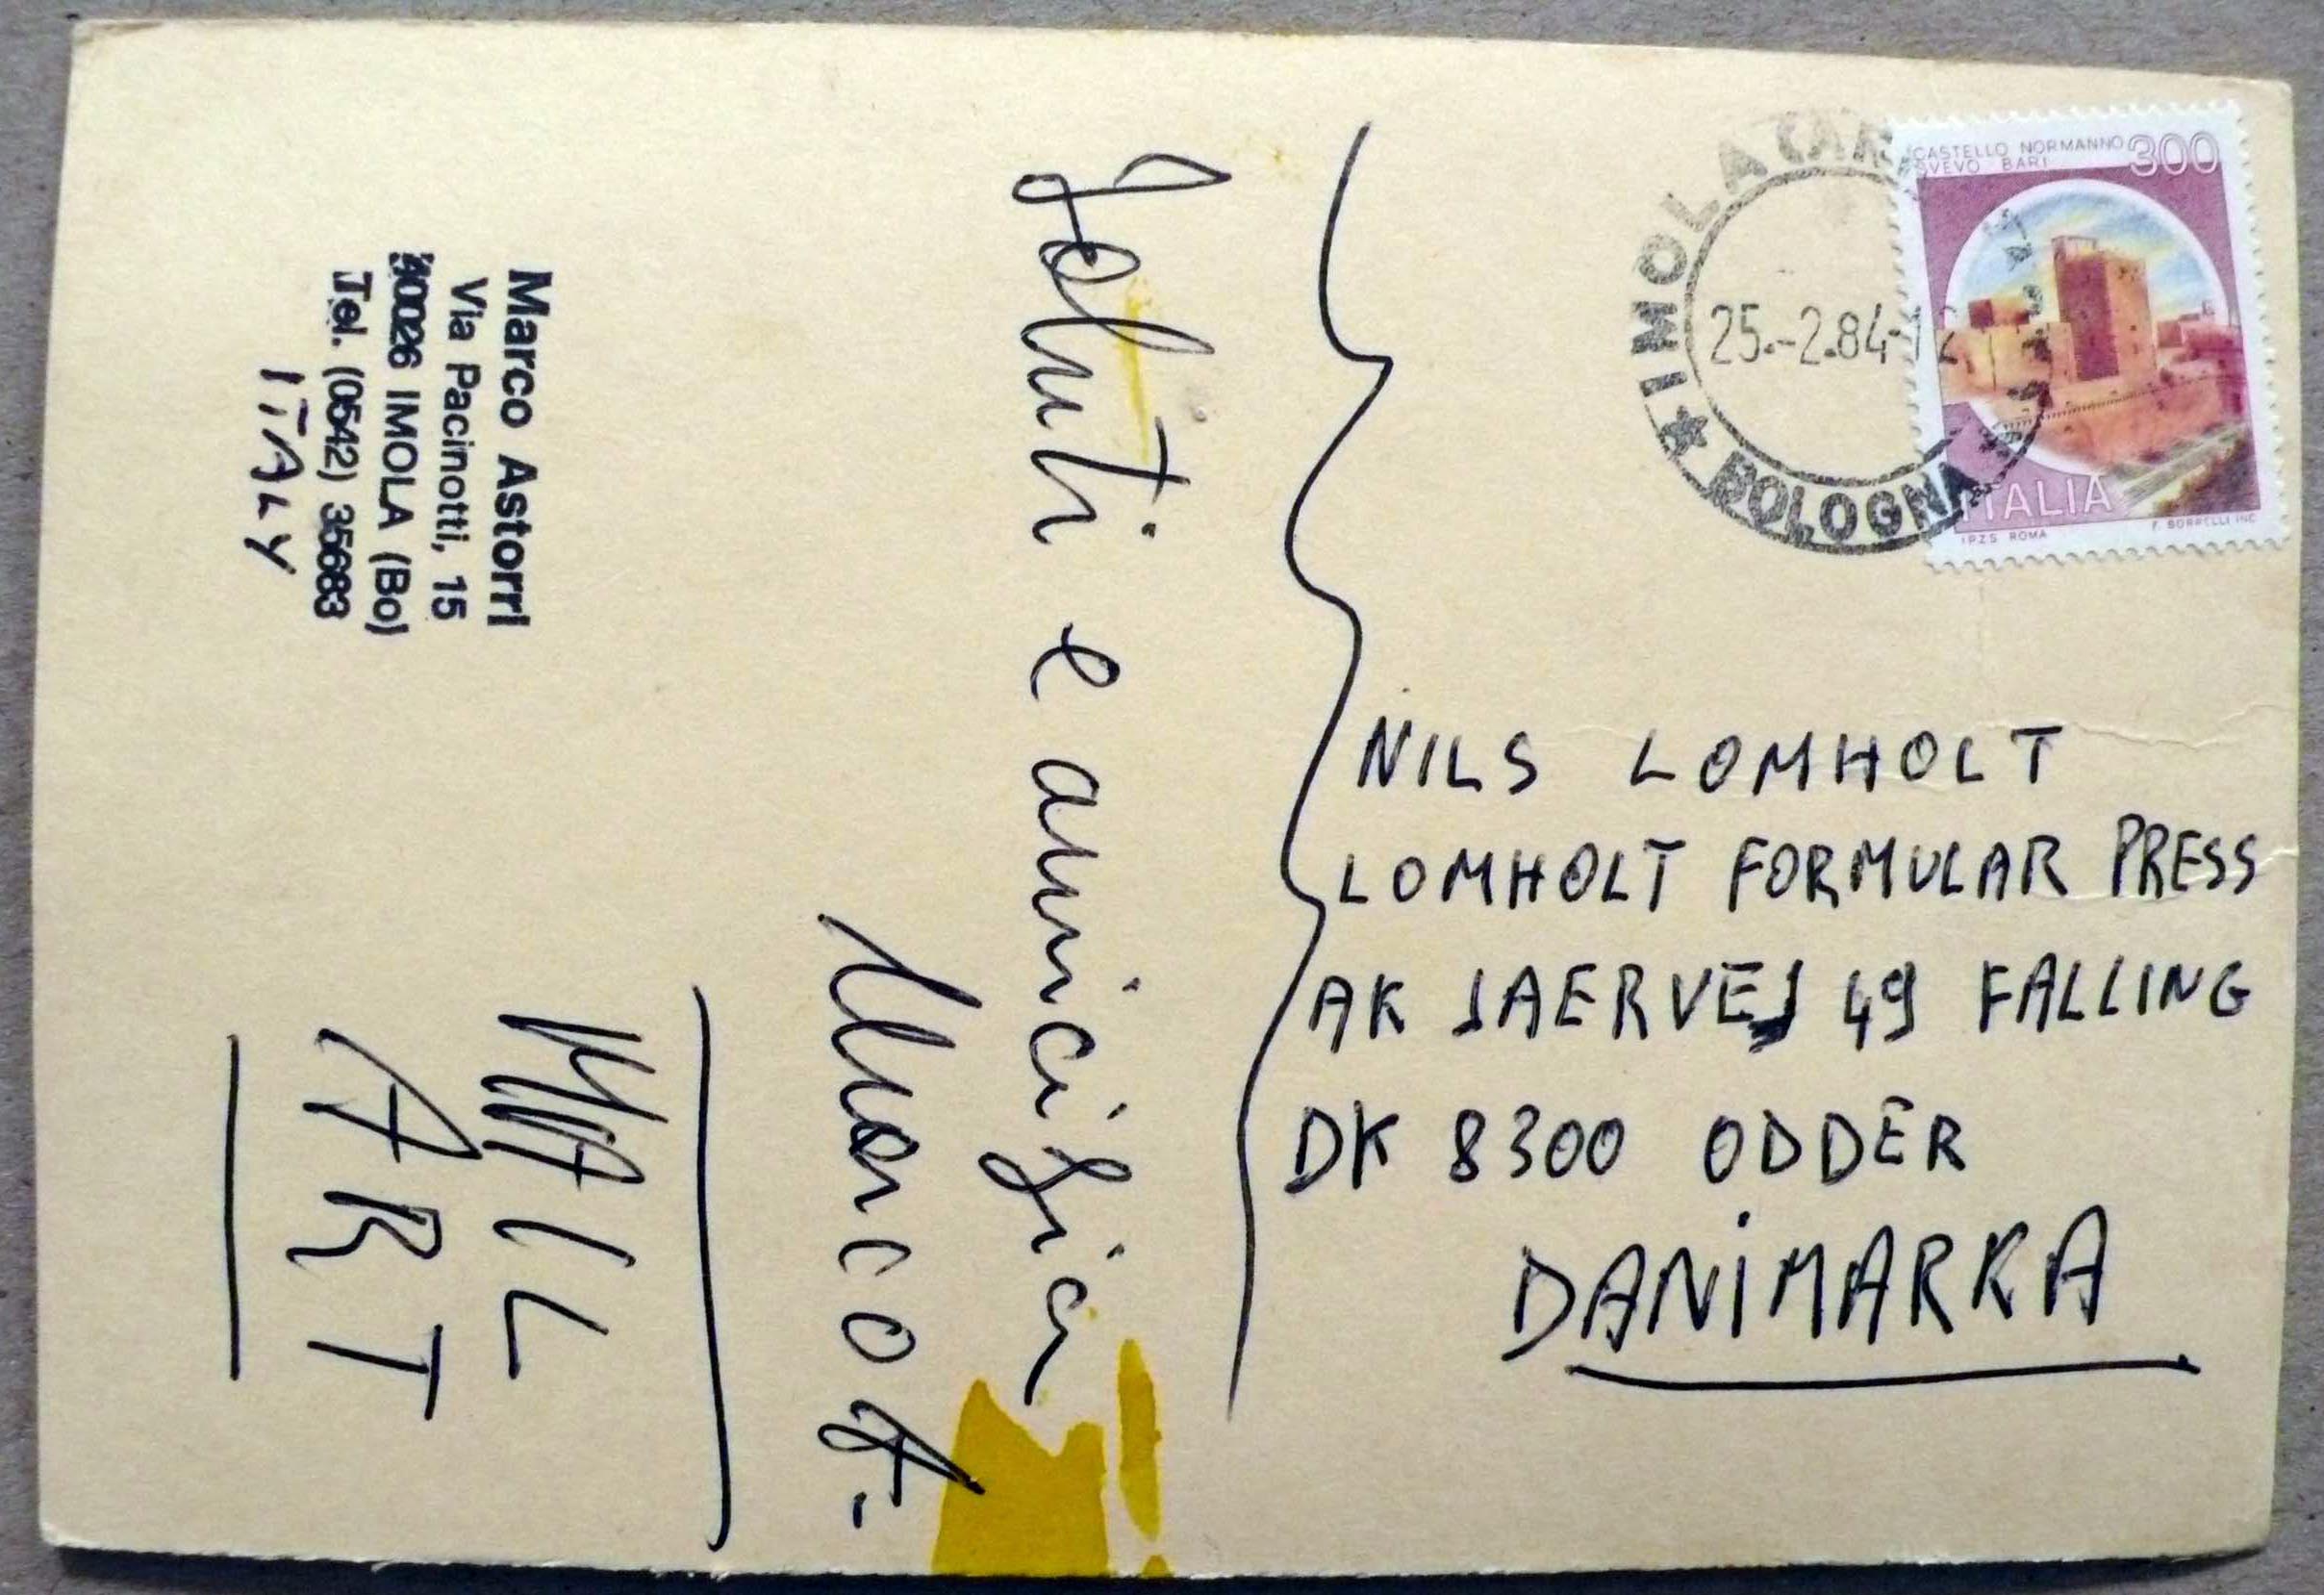 Marco Astorri
Via Pacinotti, 15
40026 IMOLA (Bo)
Tel. (0542) 35683
ITALY
Saluti e amicizia
Marco A.
MAIL
ART
CASTELLO NORMANNO 300
SVEVO BARI
ITALIA
I.P.Z.S. ROMA
F. BORRELLI INC.
IMOLA
25.-2.84-12
BOLOGNA
NILS LOMHOLT
LOMHOLT FORMULAR PRESS
AKJAERVEJ 49 FALLING
DK 8300 ODDER
DANIMARKA